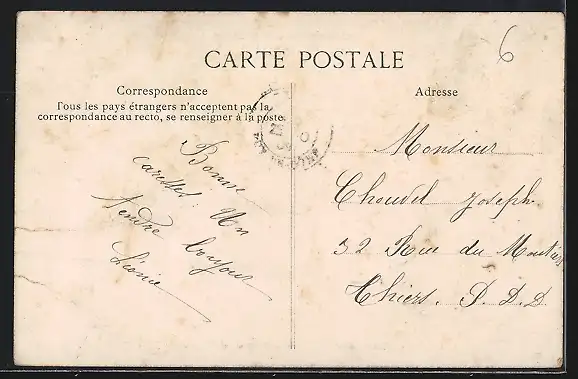 6
CARTE POSTALE
Correspondance
Tous les pays étrangers n'acceptent pas la
correspondance au recto, se renseigner à la poste.
Adresse
Bonne
caresses. Un
tendre bonjour
Léonie
Monsieur
Choudel Joseph
32 Rue du Moutier
Thiers. P. D. D